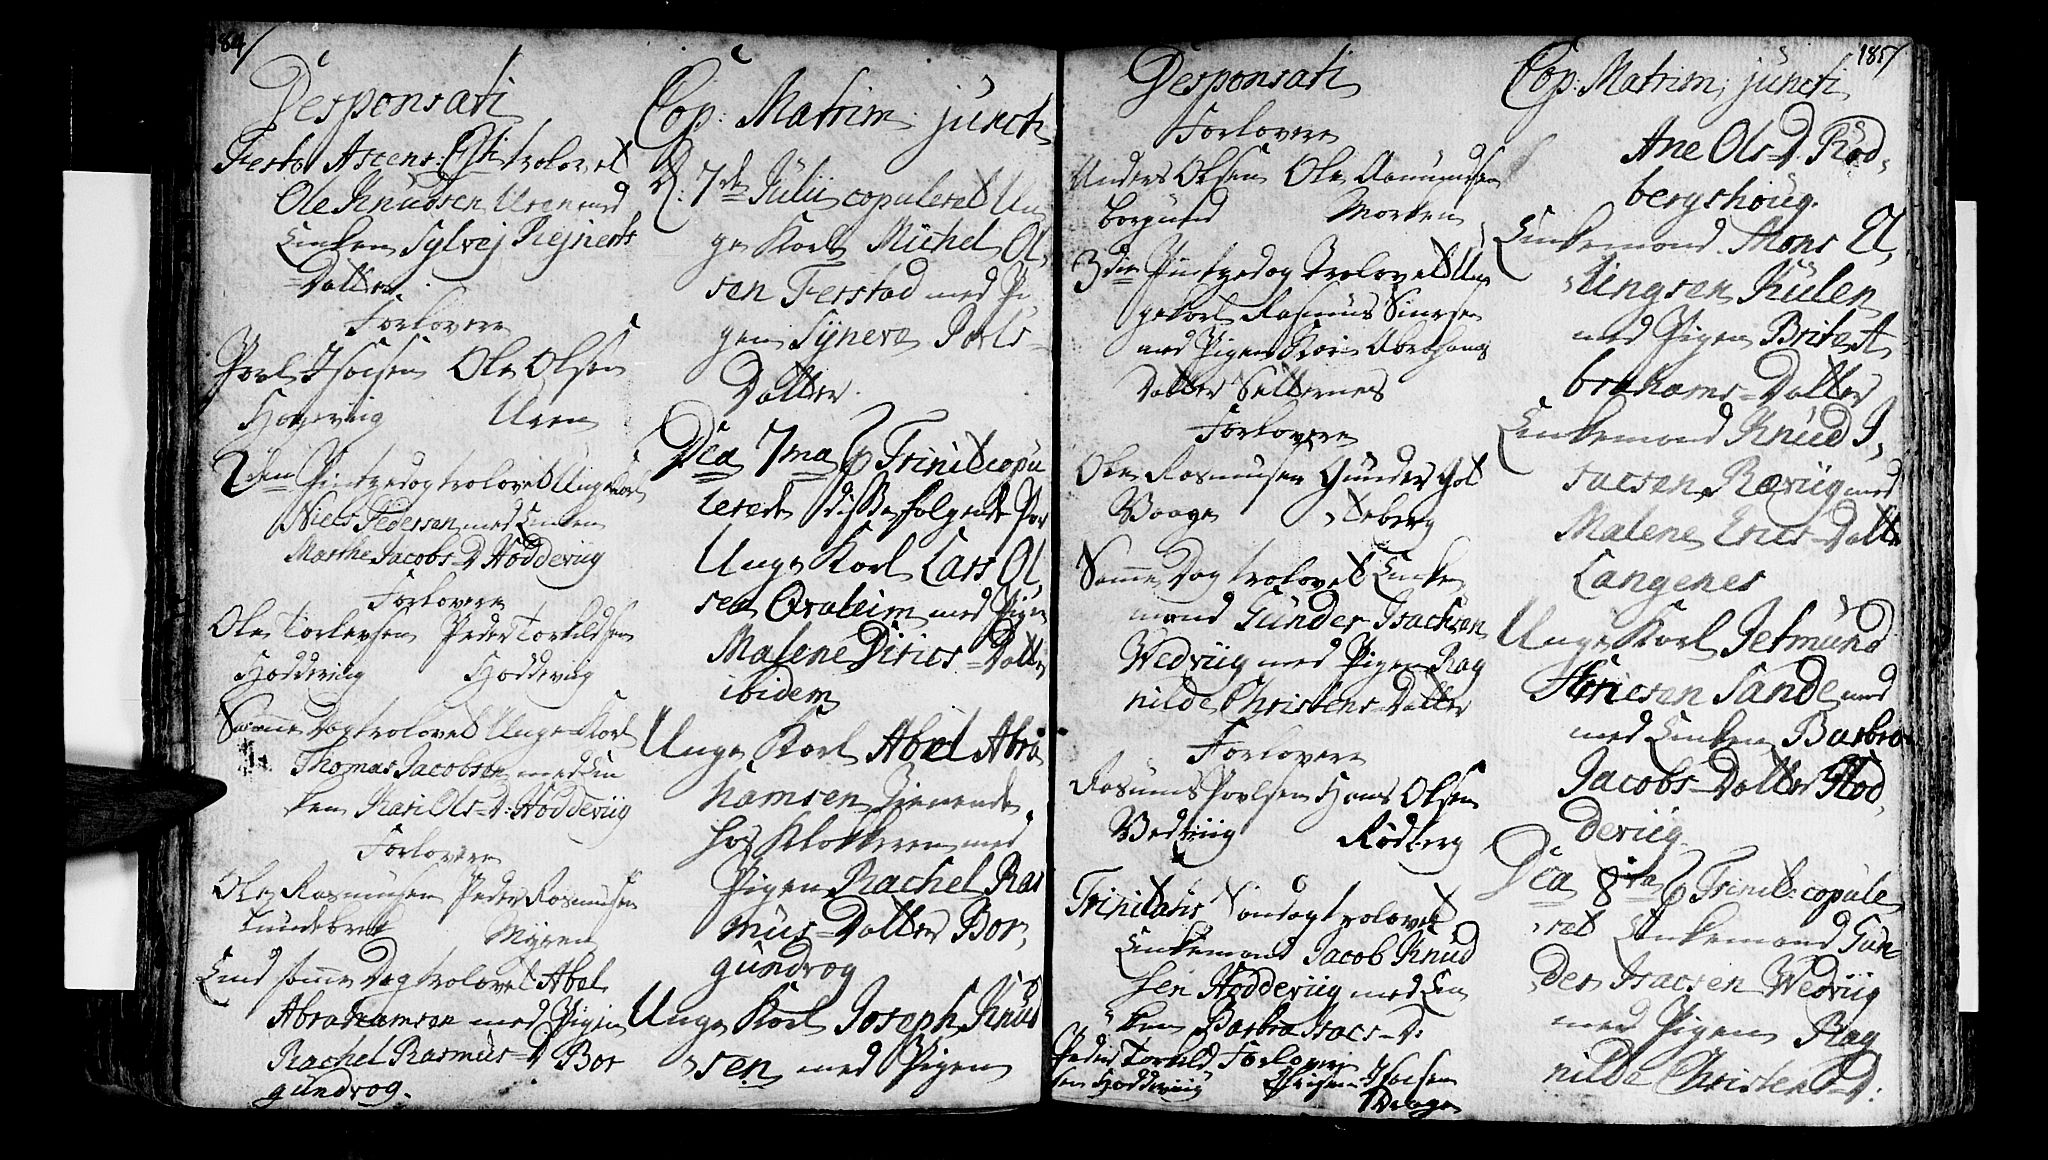 184/
Desponsati
Festo Ascens: Xsti trolovet
Ole Knudsen Uren med
Enken Sylvej Rejnerts
Datter
Forlovere
Povl Isacsen Ole Olsen
Hageviig Uren
2den Pintzedag trolovet Unge Karl
Niels Pedersen med Enken
Marthe Jacobs-D Hoddeviig
Forlovere
Ole Torlevsen Peder Torkildsen
Hoddeviig Hoddeviig
Samme Dag trolovet Unge Karl
Thomas Jacobsen med En
ken Kari Ols-D: Hoddeviig
Forlovere
Ole Rasmusen Peder Rasmusen
Lundebret Myren
End samme Dag trolovet Abel
Abrahamsen med Pigen
Rachel Rasmus-D Bor
gundvog.
Cop: Matrim: juncti
D: 7de Julii copuleret Un
ge Karl Michel Ol
sen Ferstad med Pi
gen Synera Povls-
Datter.
Dca 7ma p Trinit copu
lerede disse folgende Par
Unge Karl Lars Ol
sen Qvaheim med Pigen
Malene Dirics-Datter
ibidem
Unge Karl Abel Abra
hamsen tienende
hos Klokkeren med
Pigen Rachel Ras
mus-Datter Bor
gundvog
Unge Karl Joseph Knud
sen med Pigen
185/
Desponsati
Forlovere
Anders Olsen Ole Asmundsen
Borgund Morken
3die Pintzedag trolovet Un
ge Karl Rasmus
med Pigen Kari Abrahams
Datter Salternes
Forlovere
Ole Rasmusen Gunder Got
Vaage teberg
Samme Dag trolovet Enke
mand Gunder Isachsen
Wedviig med Pigen Rag
nilde Christens-Datter
Forlovere
Rasmus Povlsen Hans Olsen
Vedviig Rødberg
Trinitatis Søndag trolovet
Enkemand Jacob Knud
sen Hoddeviig med En
ken Barbra Isacs-D:
Peder Torkild Forlovere
sen Hoddeviig Isacsen
Draage
Cop: Matrim: juncti
Ane Ols-D. Rød
bergshoug.
Enkemand Mons El
lingsen Kulen
med Pigen Brite A
brahams-Datter
Enkemand Knud I
sacsen Ræviig med
Malene Erics-Datter
Langenes
Unge Karl Jetmund
Ericsen Sande med
med Enken Barbra
Jacobs-Datter Hod
deviig.
Dca 8va p Trinit: copule
ret Enkemand Gun
der Isacsen Wedviig
med Pigen Rag
nilde Christens-D: